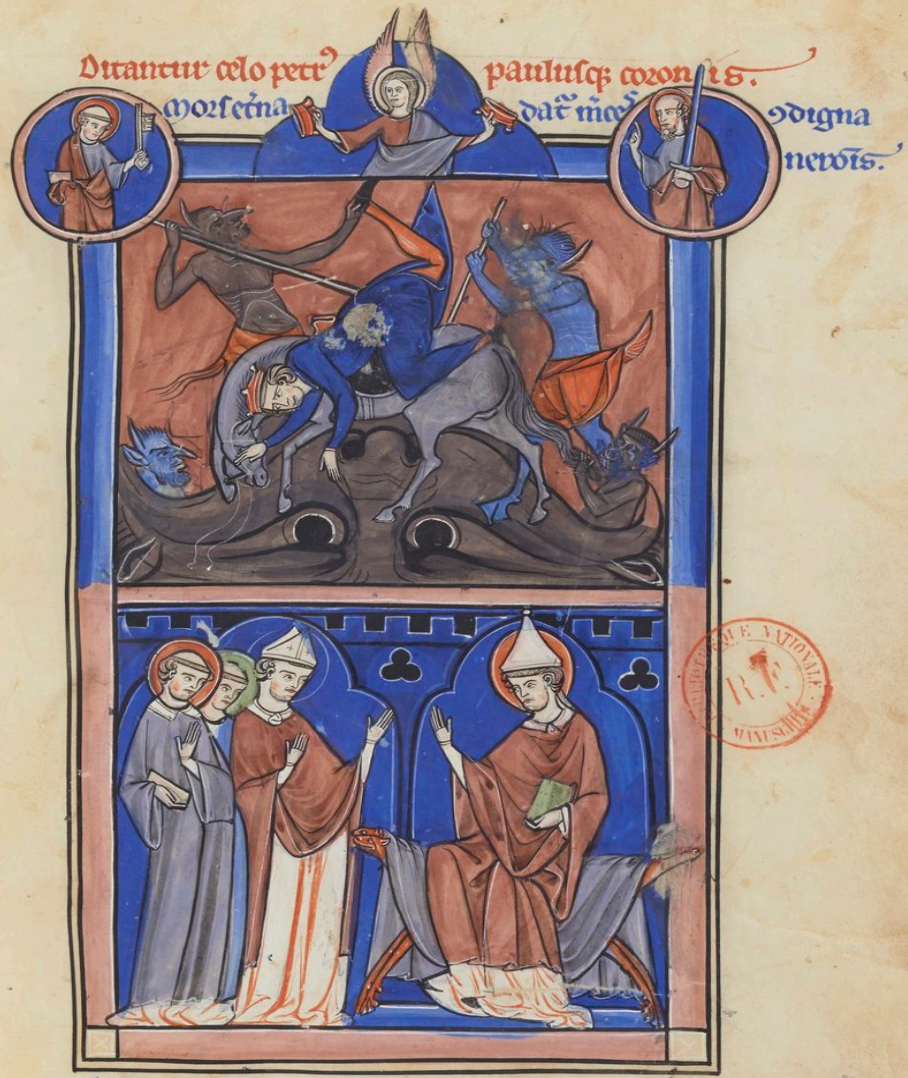 Ditantur celo petrꝰ paulusqꝫ coronis.
Mors et̃na dat̃ m̃ces ꝯdigna
nerõis.
BIBLIOTHEQUE NATIONALE
R.F.
MANUSCRITS